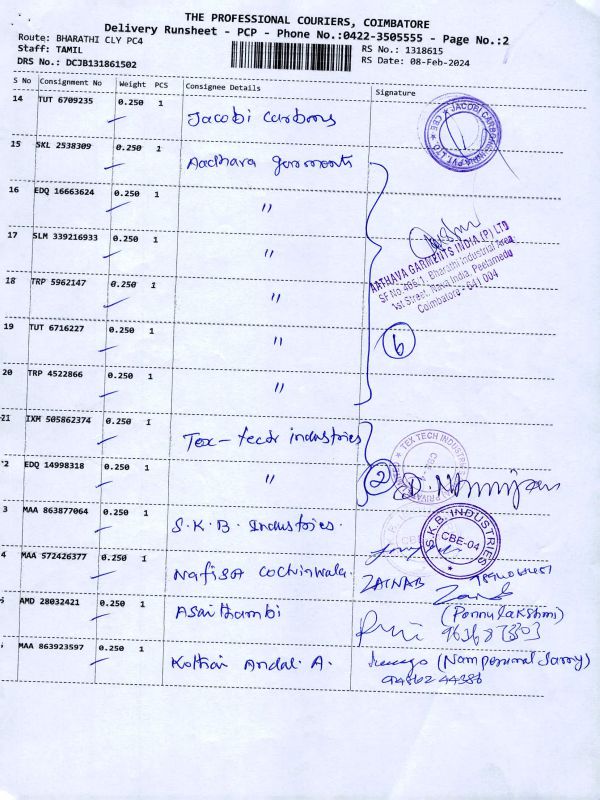 THE PROFESSIONAL COURIERS, COIMBATORE
Delivery Runsheet - PCP - Phone No.:0422-3505555 - Page No.:2
Route: BHARATHI CLY PC4
RS No.: 1318615
Staff: TAMIL
RS Date: 08-Feb-2024
DRS No.: DCJB131861502
S No Consignment No Weight PCS Consignee Details Signature
14 TUT 6709235 0.250 1 Jacobi Carbons
15 SKL 2538309 0.250 1 Aadhava garments
16 EDQ 16663624 0.250 1 "
17 SLM 339216933 0.250 1 "
AATHAVA GARMENTS INDIA (P) LTD
SF No.466/1, Bharathi Industrial Area,
1st Street, Nava India, Peelamedu
Coimbatore - 641 004
18 TRP 5962147 0.250 1 "
19 TUT 6716227 0.250 1 " 6
20 TRP 4522866 0.250 1 "
21 IXM 505862374 0.250 1 Tex-tech industries
TEX TECH INDUSTRIES
2 EDQ 14998318 0.250 1 " 2
3 MAA 863877064 0.250 1 S.K.B. Industries.
S.K.B. INDUSTRIES
CBE-04
4 MAA 572426377 0.250 1 Nafisa Cochinwala. ZAINAB
AMD 28032421 0.250 1 Asaithambi (Ponnulakshmi)
MAA 863923597 0.250 1 Kothai Andal. A.